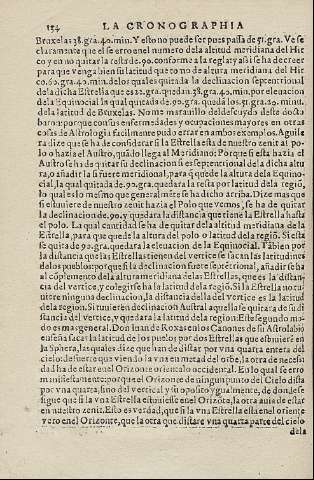 154 LA CRONOGRAPHIA
Bruxelas 38.gra.40.min. Y esto no puede ser pues passa de 51.gra. Ve se
claramente que el se erro en el numero de la altitud meridiana del Hir
co y en no quitar la resta de 90. conforme a la regla: y assi se ha de creer
para que venga bien su latitud que tomo de altura meridiana del Hir
co.60.gra.40.min. de los quales quitada la declinacion septentrional
de la dicha Estrella que es 22.gra. quedan.38.gra.40.min. por eleuacion
de la Equinocial la qual quitada de.90.gra. queda los.51.gra.20.minu.
de la latitud de Bruxelas. No me marauillo del descuydo deste docto
baron: porque con sus enfermedades y occupaciones mayores en otras
cosas de Astrologia facilmente pudo errar en ambos exemplos. Aguile
ra dize que se ha de considerar si la Estrella esta de nuestro zenit azi al po-
lo o hazia el Austro, quãdo llega al Meridiano: Porque si esta hazia el
Austro se ha de quitar su declinacion si es septentrional de la dicha altu
ra, o añadir la si fuere meridional, para q̃ quede la altura de la Equino-
cial, la qual quitada de.90.gra. quedara la resta por latitud de la regiõ,
lo qual es lo mesmo que generalmẽte se ha dicho arriba. Dize mas que
si estuuiere de nuestro zenit hazia el Polo que vemos, se ha de quitar
la declinacion de.90. y quedara la distancia que tiene la Estrella hasta
el polo. La qual cantidad se ha de quitar del altitud meridiana de la
Estrella, para que quede la altura de polo o latitud de la regiõ. Si esta
se quita de 90.gra. quedara la eleuacion de la Equinocial. Tãbien por
la distancia que las Estrellas tienen del vertice se sacan las latitudines
de los pueblos: porque si la declinacion fuere septẽtrional, añadir se ha
al cõplemento del altura meridiana de las Estrellas, que es la distan-
cia del vertice, y colegirse ha la latitud de la regiõ. Si la Estrella no tu
uiere ninguna declinacion, la distancia della del vertice es la latitud
de la region. Si tuuiere la declinacion Austral aquella se quitara de su di
stancia del vertice, y quedara la latitud de la region. Este segundo mo-
do es mas general. Don Iuan de Roxas en los Canones de su Astrolabio
enseña sacar la latitud de los pueblos por dos Estrellas que estuuieren en
la Sphera, las quales dize que han de distar por vna quarta entera del
cielo: de suerte que viendo la vna en metad del orbe, la otra de necessi
dad ha de estar en el Orizonte oriental o occidental. En lo qual se erro
manifiestamente: porque el Orizonte de ningun punto del Cielo dista
por vna quarta, sino del vertical y su opposito ygualmente, de donde se
sigue que si la vna Estrella estuuiesse en el Orizõte, la otra auia de estar
en nuestro zenit. Esto es verdad, que si la vna Estrella esta en el oriente
y ero en el Orizonte, que la otra que distare vna quarta parte del cielo
dela